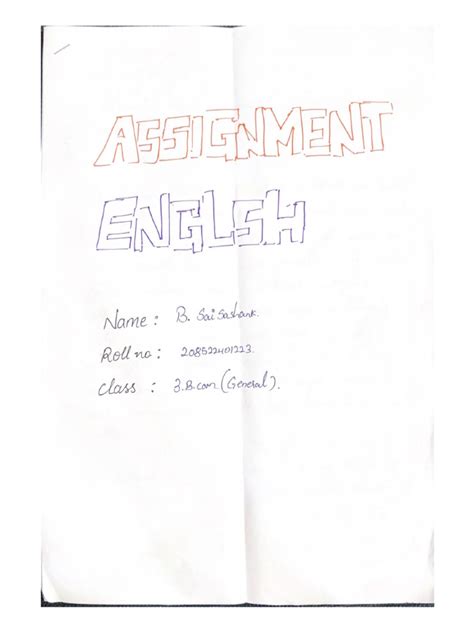 ASSIGNMENT
ENGLSH
Name : B. Sai Sashank.
Roll no : 208522401223.
Class : 3.B.com (General).